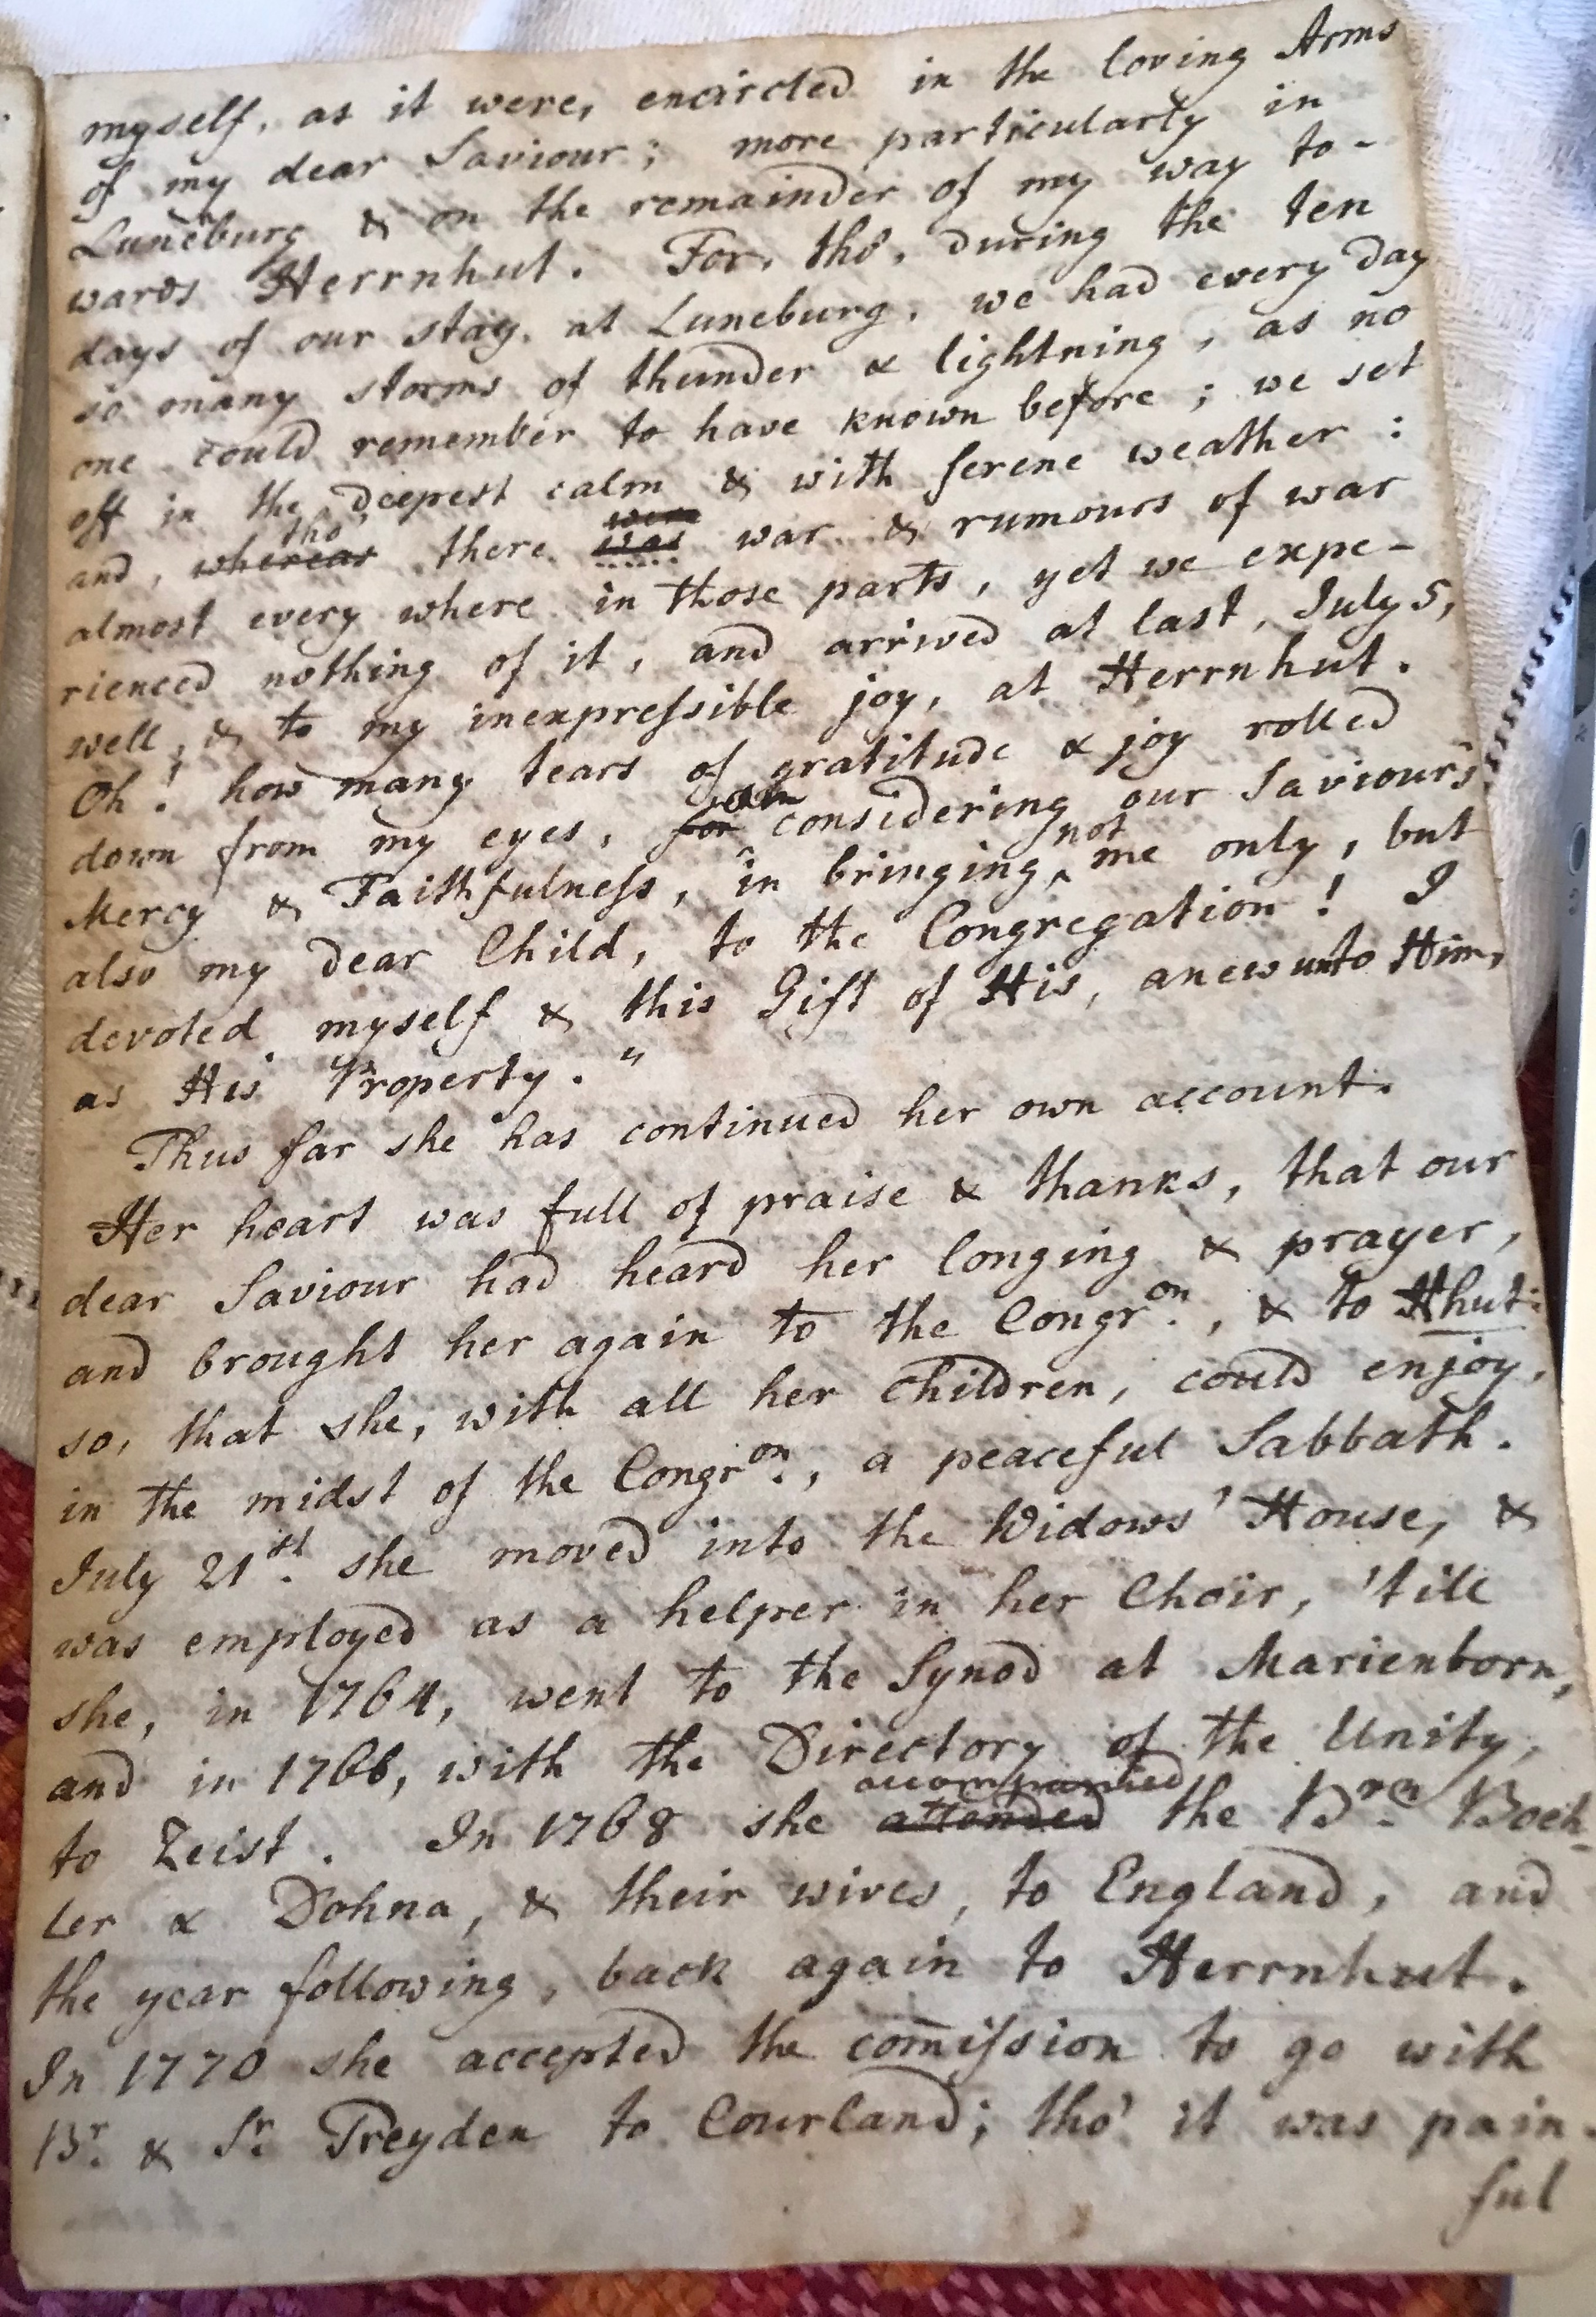 myself, as it were, encircled in the loving Arms
of my dear Saviour; more particularly in
Luneburg & on the remainder of my way to-
wards Herrnhut. For, tho', during the ten
days of our stay, at Luneburg, we had every day
so many storms of thunder & lightning, as no
one could remember to have known before; we set
off in the deepest calm & with serene weather:
and, whereas tho' there was were war & rumours of war
almost every where in those parts, yet we expe-
rienced nothing of it, and arrived at last, July 5,
well, & to my inexpressible joy, at Herrnhut.
Oh! how many tears of gratitude & joy rolled
down from my eyes, for on considering our Saviour's
Mercy & Faithfulness, in bringing not me only, but
also my dear Child, to the Congregation! I
devoted myself & this Gift of His, anew unto Him,
as His Property."
Thus far she has continued her own account.
Her heart was full of praise & thanks, that our
dear Saviour had heard her longing & prayer,
and brought her again to the Congr.on, & to Hhut:
so, that she, with all her children, could enjoy,
in the midst of the Congr.on, a peaceful Sabbath.
July 21.st she moved into the Widows' House, &
was employed as a helper in her Choir, 'till
she, in 1764, went to the Synod at Marienborn,
and in 1766, with the Directory of the Unity,
to Zeist. In 1768 she attended accompanied the Br.en Boeh-
ler & Dohna, & their wives, to England, and
the year following, back again to Herrnhut.
In 1770 she accepted the com̄ission to go with
Br. & Sr. Treyden to Courland; tho' it was pain-
ful